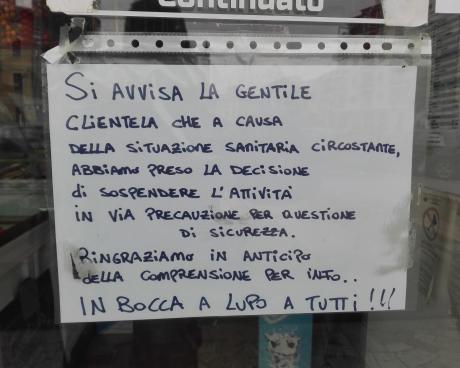 continuato
Si AVVISA LA GENTILE
CLIENTELA CHE A CAUSA
DELLA SITUAZIONE SANITARIA CIRCOSTANTE,
ABBIAMO PRESO LA DECISIONE
di SOSPENDERE L'ATTIVITÀ
IN VIA PRECAUZIONE PER QUESTIONE
DI SICUREZZA.
RINGRAZIAMO IN ANTICIPO
DELLA COMPRENSIONE PER INFO..
IN BOCCA A LUPO A TUTTI!!!